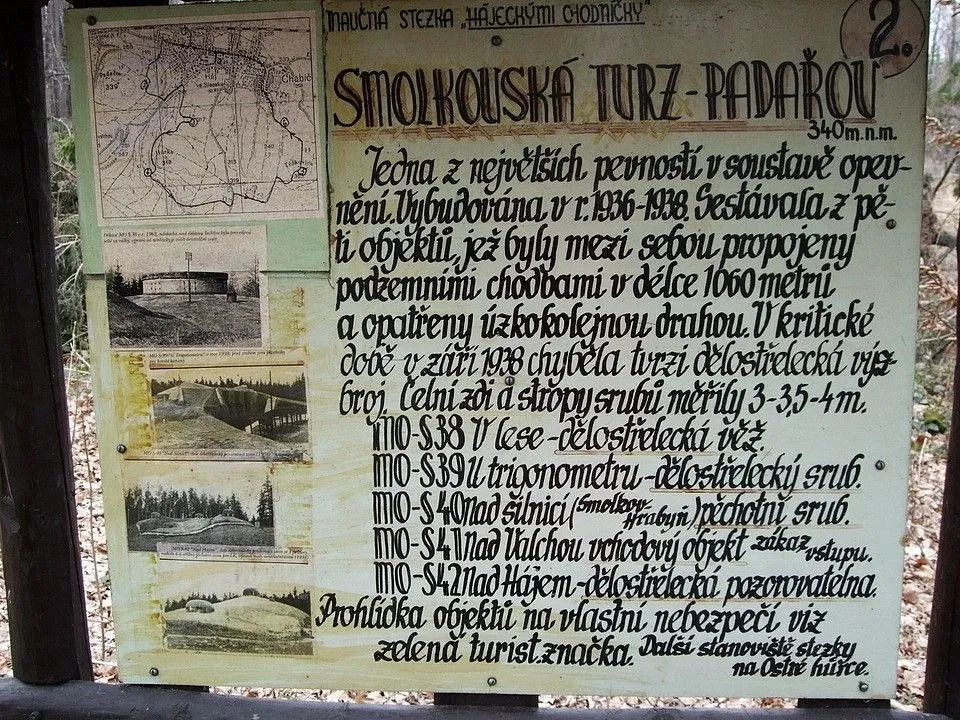 NAUČNÁ STEZKA „HÁJECKÝMI CHODNÍČKY“
2.
SMOLKOVSKÁ TVRZ-PADAŘOV
340 m.n.m.
Jedna z největších pevností v soustavě opev-
nění. Vybudována v r. 1936-1938. Sestávala z pě-
ti objektů, jež byly mezi sebou propojeny
podzemními chodbami v délce 1060 metrů
a opatřeny úzkokolejnou drahou. V kritické
době v září 1938 chyběla tvrzi dělostřelecká výz
broj. Čelní zdi a stropy srubů měřily 3-3,5-4 m.
MO-S38 V lese - dělostřelecká věž.
MO-S39 U trigonometru - dělostřelecký srub.
MO-S40 nad silnicí (Smolkov-
Hrabyň) pěchotní srub.
MO-S41 Nad Valchou vchodový objekt zákaz vstupu.
MO-S42 Nad Hájem - dělostřelecká pozorovatelna.
Prohlídka objektů na vlastní nebezpečí viz
zelená turist. značka. Další stanoviště stezky
na Ostré hůrce.